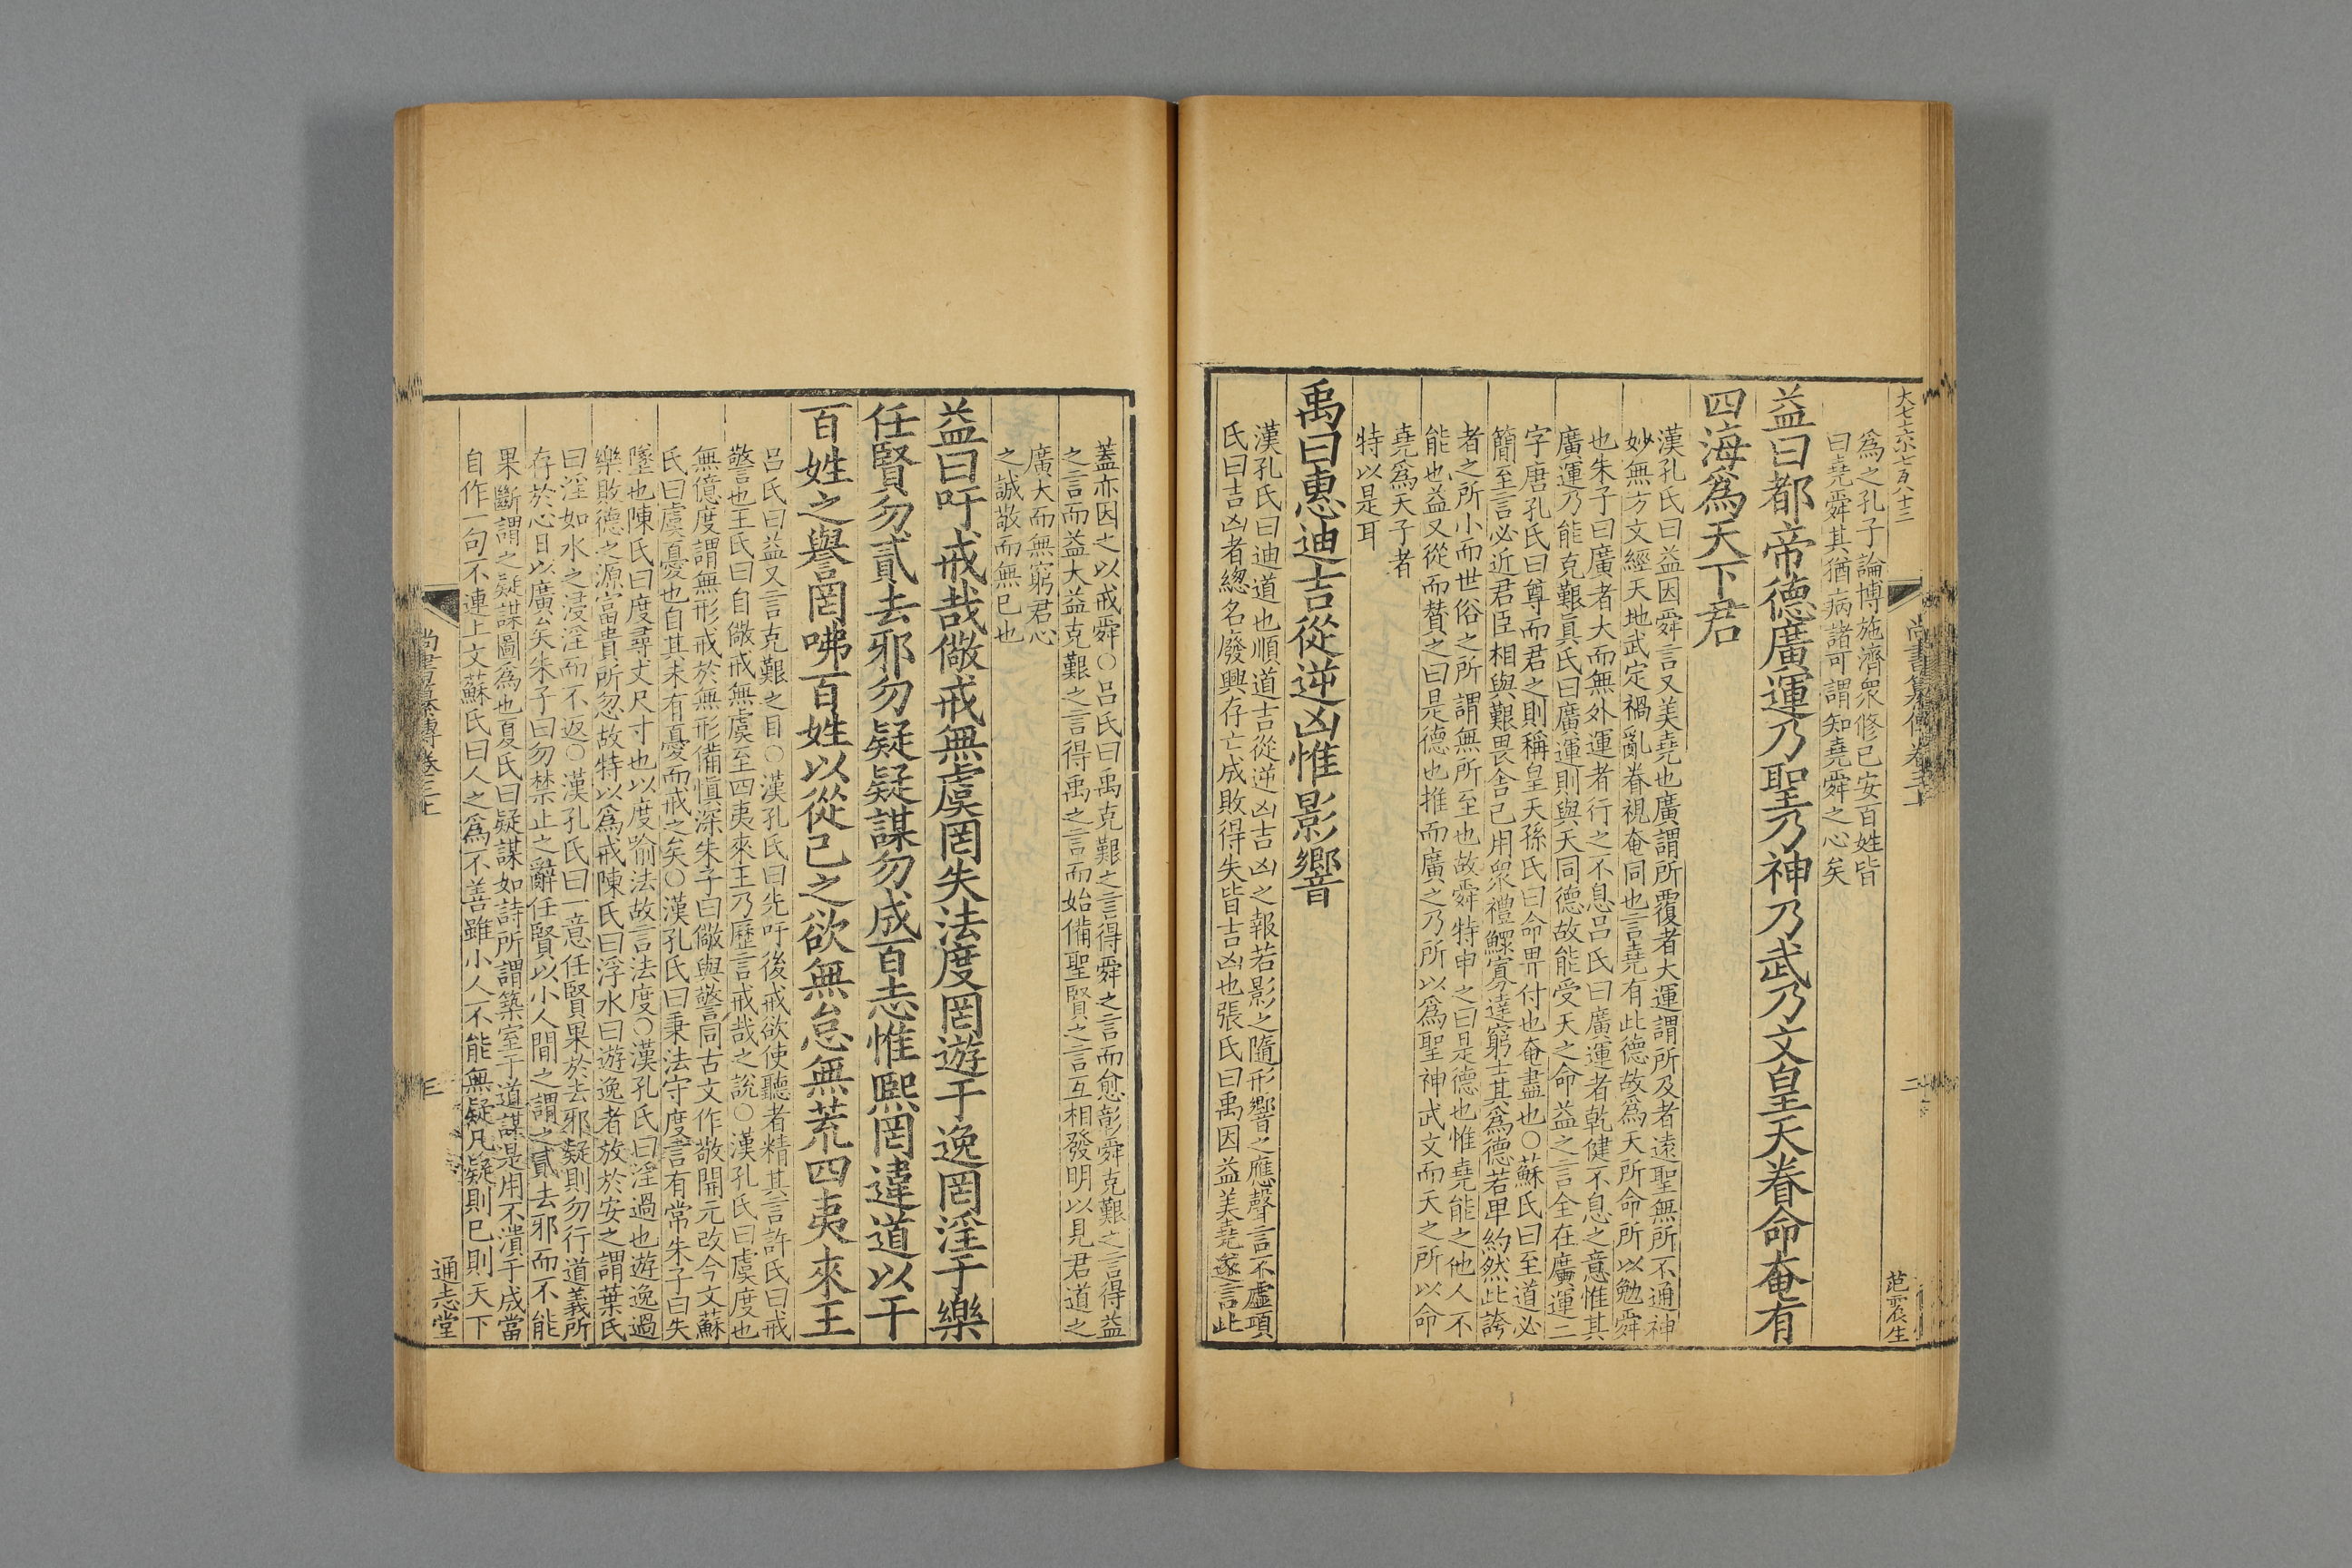 大七六小七百八十三
尚書纂傳卷三上
二
范震生
爲之孔子論博施濟衆修己安百姓皆
曰堯舜其猶病諸可謂知堯舜之心矣
益曰都帝德廣運乃聖乃神乃武乃文皇天眷命奄有
四海爲天下君
漢孔氏曰益因舜言又美堯也廣謂所覆者大運謂所及者遠聖無所不通神
妙無方文經天地武定禍亂眷視奄同也言堯有此德故爲天所命所以勉舜
也朱子曰廣者大而無外運者行之不息呂氏曰廣運者乾健不息之意惟其
廣運乃能克艱眞氏曰廣運則與天同德故能受天之命益之言全在廣運二
字唐孔氏曰尊而君之則稱皇天孫氏曰命畀付也奄盡也○蘇氏曰至道必
簡至言必近君臣相與艱畏舍己用衆禮鰥寡達窮士其爲德若卑約然此誇
者之所小而世俗之所謂無所至也故舜特申之曰是德也惟堯能之他人不
能也益又從而贊之曰是德也推而廣之乃所以爲聖神武文而天之所以命
堯爲天子者
特以是耳
禹曰惠迪吉從逆凶惟影響
漢孔氏曰迪道也順道吉從逆凶吉凶之報若影之隨形響之應聲言不虛項
氏曰吉凶者緫名廢興存亡成敗得失皆吉凶也張氏曰禹因益美堯遂言此
蓋亦因之以戒舜○呂氏曰禹克艱之言得舜之言而愈彰舜克艱之言得益
之言而益大益克艱之言得禹之言而始備聖賢之言互相發明以見君道之
廣大而無窮君心
之誠敬而無已也
益曰吁戒哉儆戒無虞罔失法度罔遊于逸罔淫于樂
任賢勿貳去邪勿疑疑謀勿成百志惟熙罔違道以干
百姓之譽罔咈百姓以從己之欲無怠無荒四夷來王
呂氏曰益又言克艱之目○漢孔氏曰先吁後戒欲使聽者精其言許氏曰戒
警也王氏曰自儆戒無虞至四夷來王乃歷言戒哉之說○漢孔氏曰虞度也
無億度謂無形戒於無形備愼深朱子曰儆與警同古文作敬開元改今文蘇
氏曰虞憂也自其未有憂而戒之矣○漢孔氏曰秉法守度言有常朱子曰失
墜也陳氏曰度尋丈尺寸也以度喻法故言法度○漢孔氏曰淫過也遊逸過
樂敗德之源富貴所忽故特以爲戒陳氏曰浮水曰遊逸者放於安之謂葉氏
曰淫如水之浸淫而不返○漢孔氏曰一意任賢果於去邪疑則勿行道義所
存於心日以廣矣朱子曰勿禁止之辭任賢以小人間之謂之貳去邪而不能
果斷謂之疑謀圖爲也夏氏曰疑謀如詩所謂築室于道謀是用不潰于成當
自作一句不連上文蘇氏曰人之爲不善雖小人不能無疑凡疑則已則天下
尚書纂傳卷三上
三
通志堂